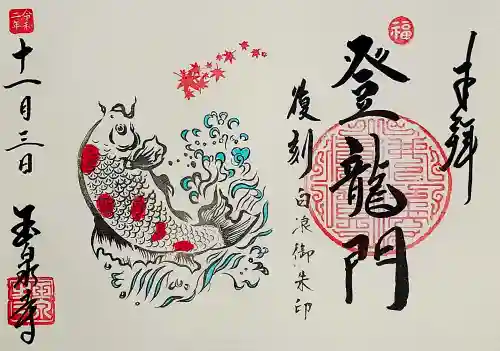 奉拝
福
登龍門
復刻
白浪御朱印
令和
二年
十一月三日
玉泉寺